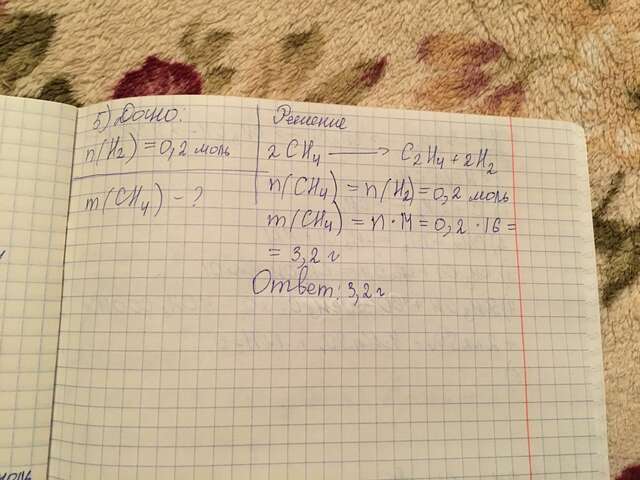 5) Дано:
n(H₂) = 0,2 моль
m(CH₄) - ?
Решение
2CH₄ ⟶ C₂H₄ + 2H₂
n(CH₄) = n(H₂) = 0,2 моль
m(CH₄) = n · M = 0,2 · 16 =
= 3,2 г
Ответ: 3,2 г